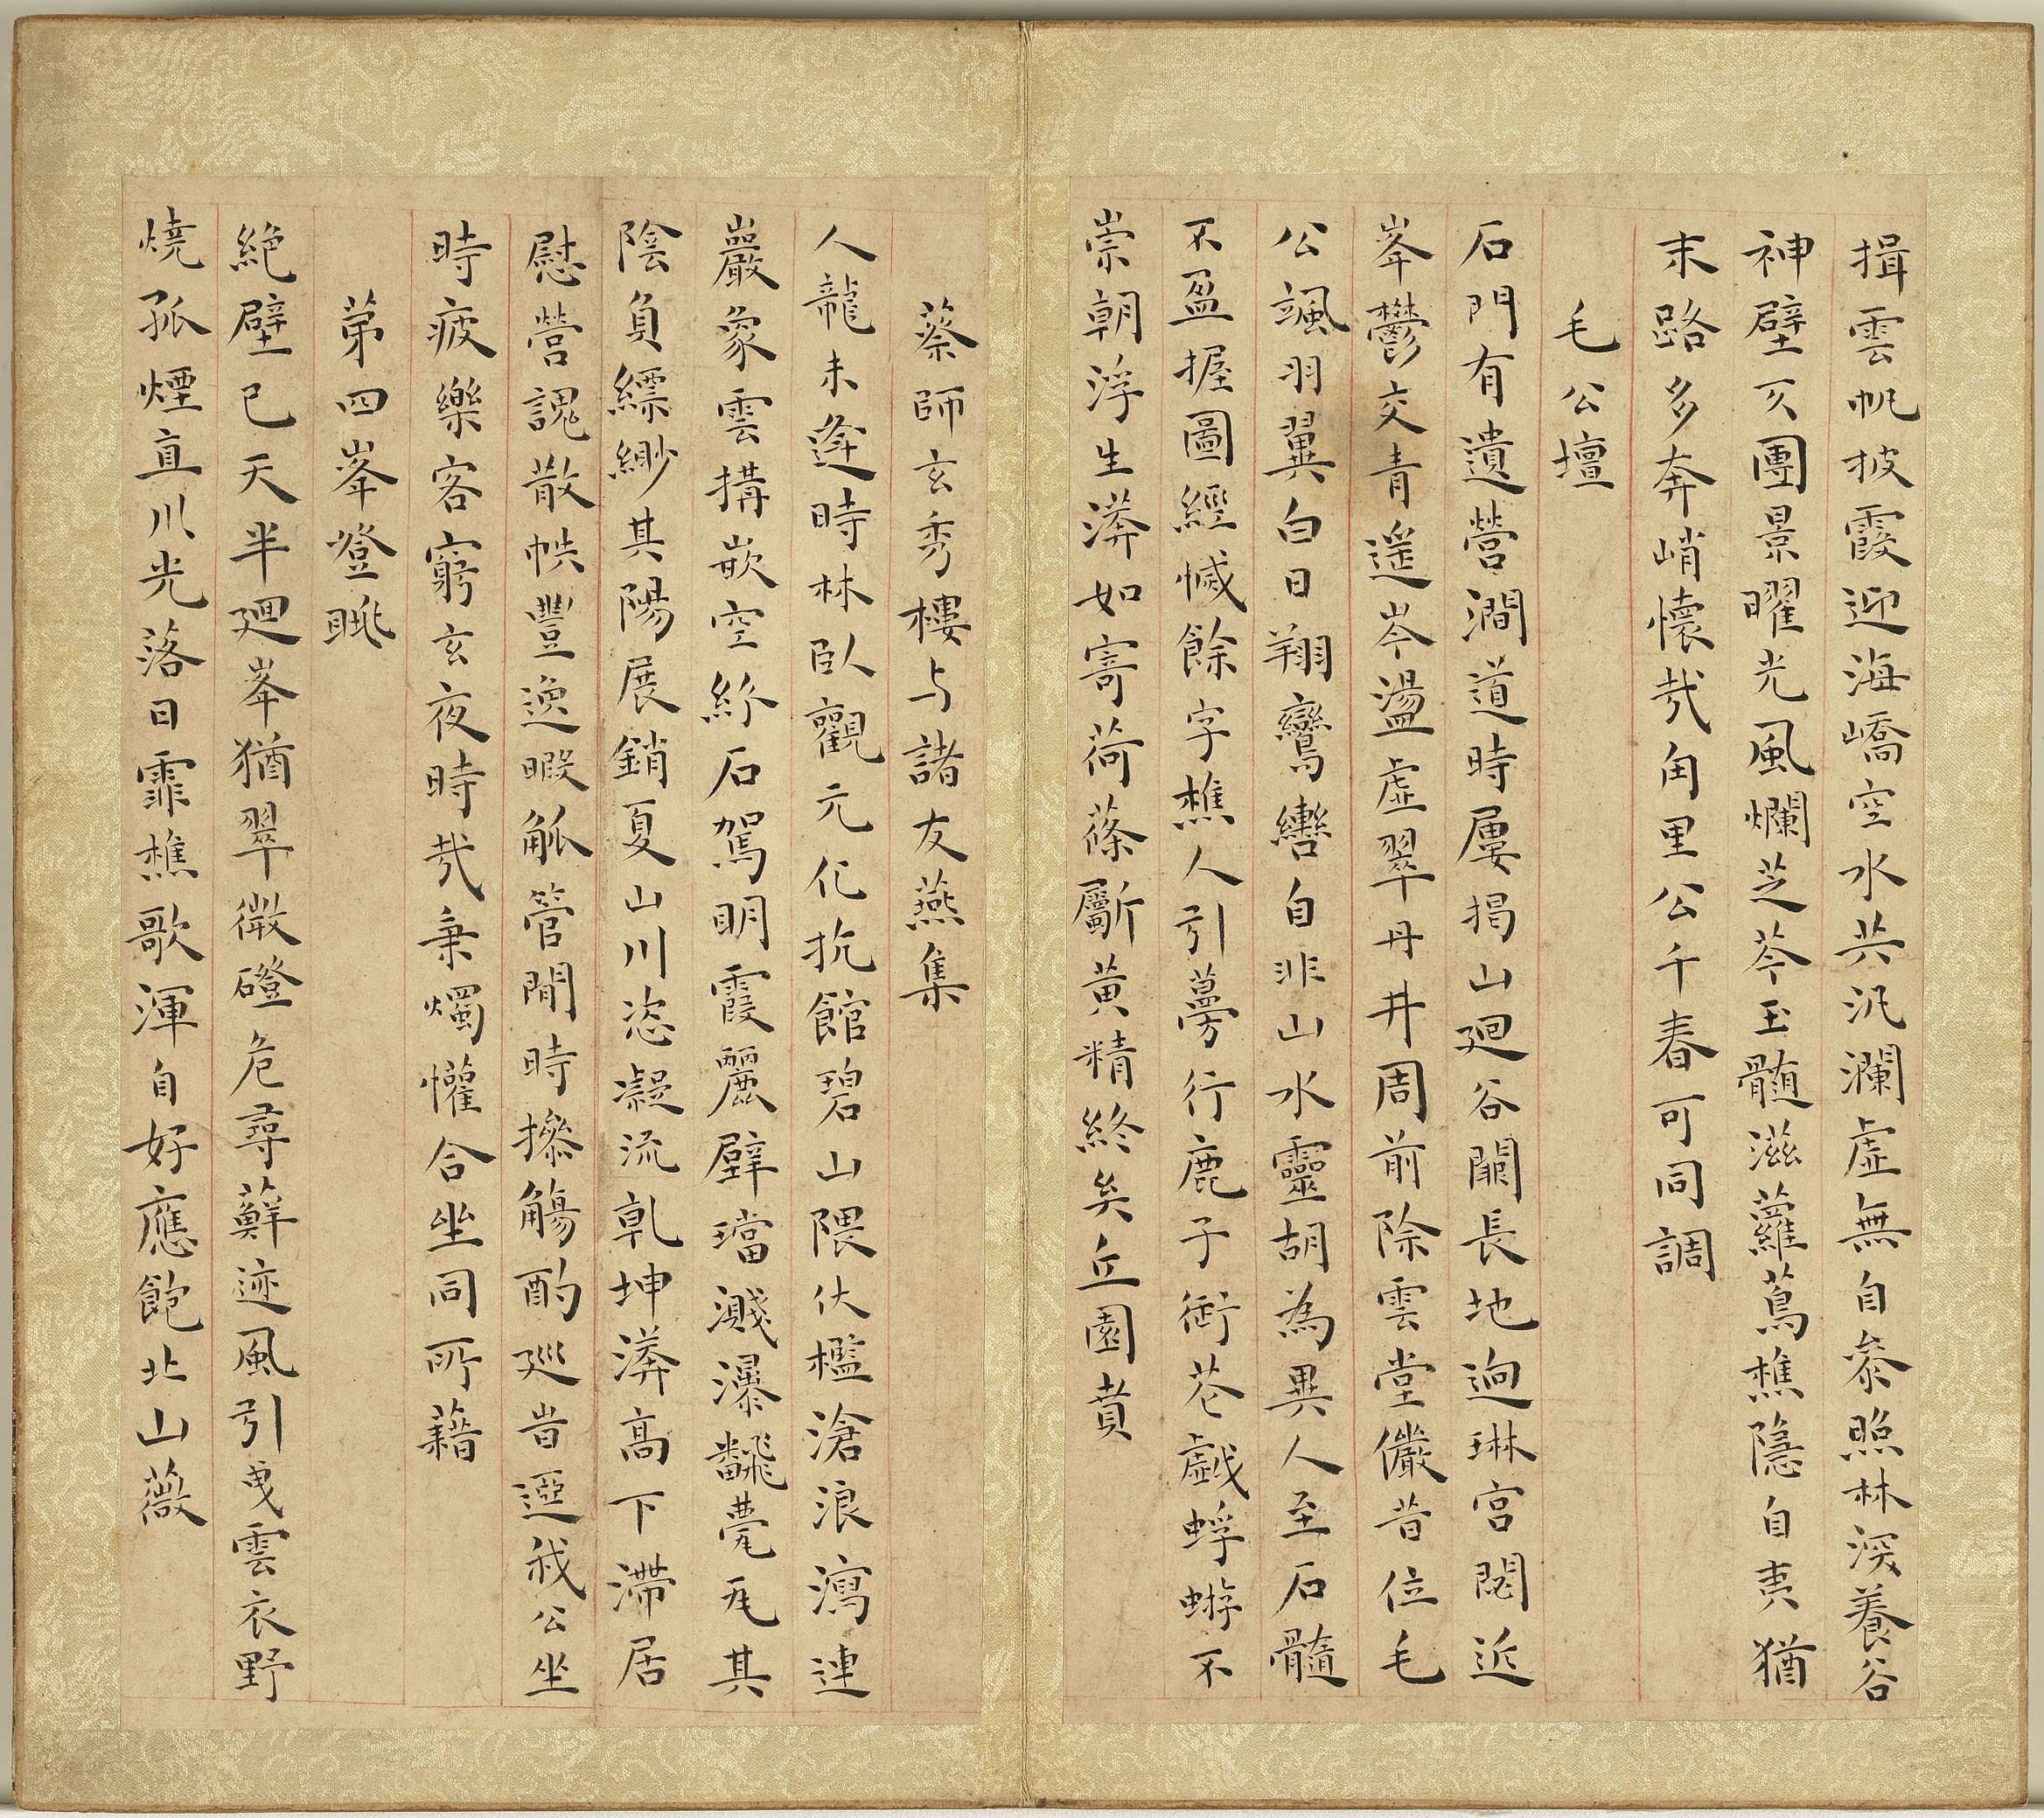 揖雲帆披霞迎海嶠空水共汎瀾虛無自叅照林深養谷
神壁仄團景曜光風爛芝苓玉髓滋蘿蔦樵隱自夷猶
末路多奔峭懷哉甪里公千春可同調
毛公壇
石門有遺營澗道時屢揭山廻谷闢長地逈琳宮閟近
峯鬱交青遥岑盪虛翠丹井周前除雲堂儼昔位毛
公颯羽翼白日翔鸞轡自非山水靈胡為異人至石髓
不盈握圖經慽餘字樵人引蔓行鹿子銜花戯蜉蝣不
崇朝浮生漭如寄荷蓧斸黃精終矣丘園賁
蔡師玄秀樓与諸友燕集
人龍未逢時林臥觀元化抗館碧山隈伏檻滄浪瀉連
巖象雲搆嵌空紾石駕明霞麗壁璫濺瀑飜甍瓦其
陰負縹緲其陽展銷夏山川恣凝流乾坤漭高下滯居
慰營魂散帙豐逸暇觚管閒時操觴酌廵昔迺我公坐
時疲樂客窮玄夜時哉秉燭懽合坐同所藉
苐四峯登眺
絶壁已天半廻峯猶翠微磴危尋蘚迹風引曵雲衣野
燒孤煙直川光落日霏樵歌渾自好應飽北山薇